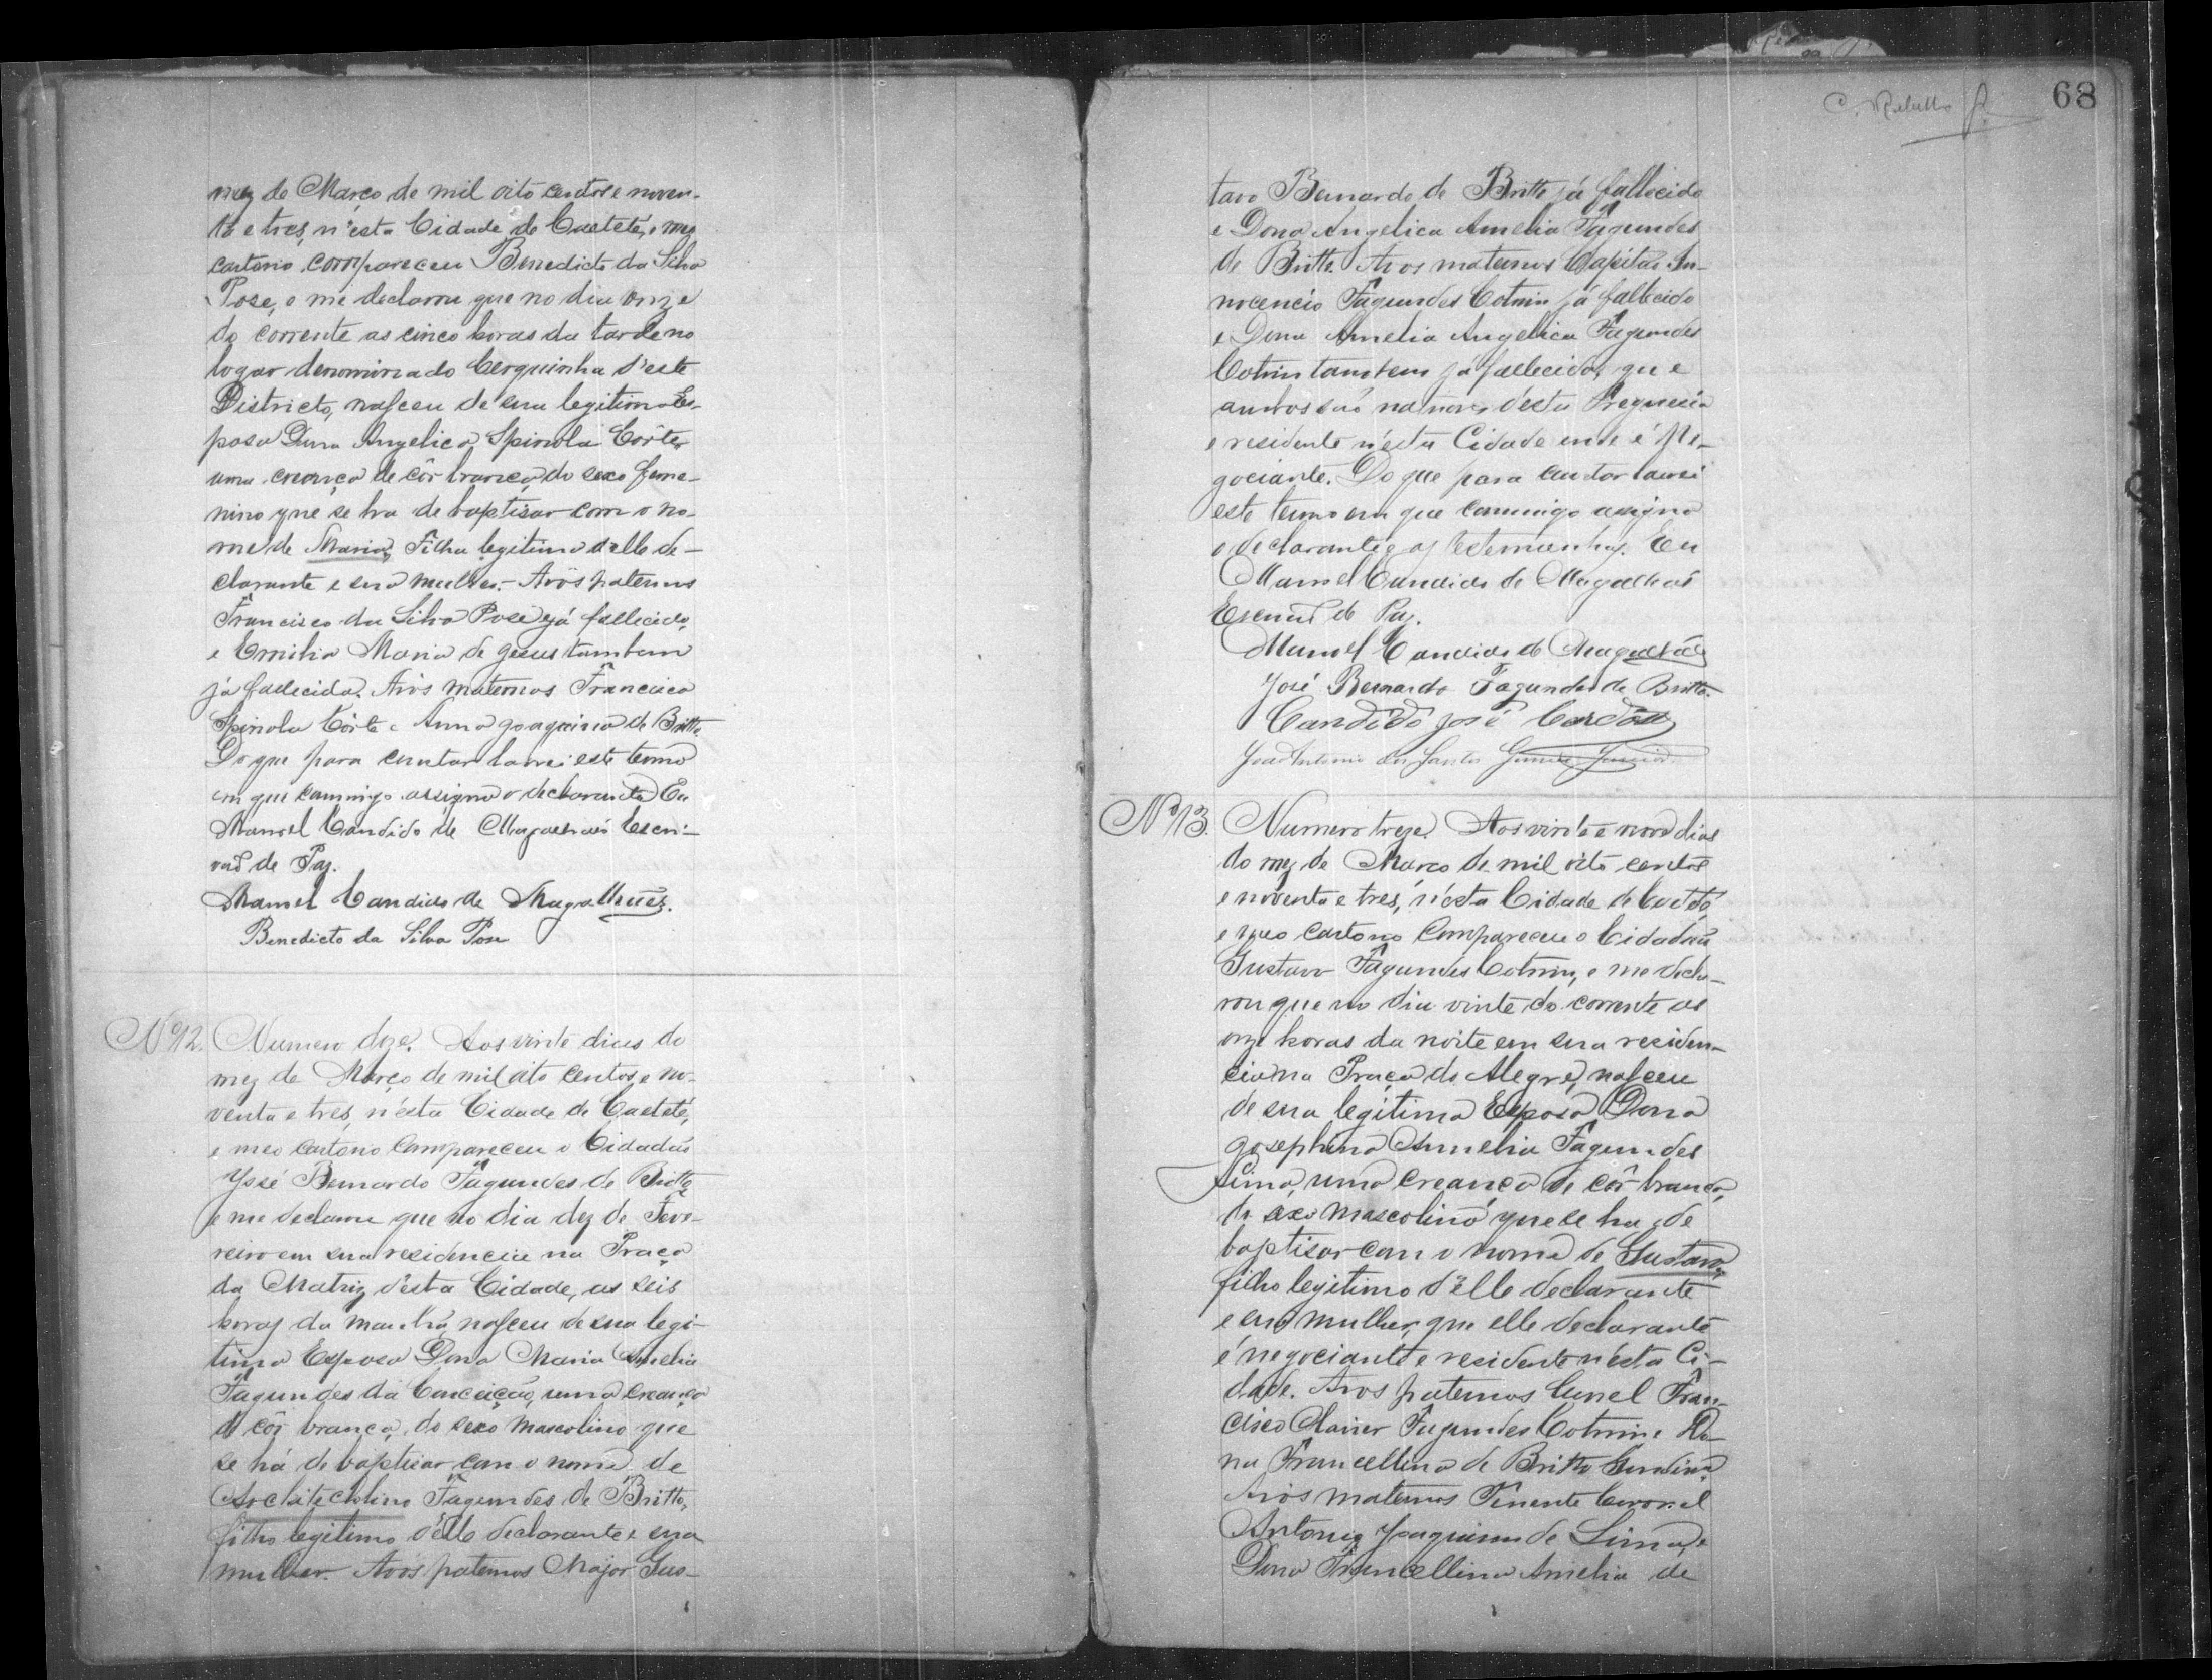 mez de Março de mil oito centos e noven-
ta e tres, n'esta Cidade de Caetete, e meo
cartorio compareceu Benedicto da Silva
Pose, e me declarou que no dia onze
do corrente as cinco horas da tarde no
logar denominado Cerquinha d'este
Districto, nasceu de sua legitima Es-
posa Dona Angelica Spinola Côrtes
uma creança de côr branca, do sexo feme-
nino que se ha de baptisar com o no-
me de Maria, Filha legitima d'elle de-
clarante e sua mulher. - Avós paternos
Francisco da Silva Pose já fallecido,
e Emilia Maria de Jesus tambem
já fallecida. Avós maternos Francisco
Spinola Côrte e Anna Joaquina de Britto
Do que para constar lavrei este termo
em que commigo assigna o declarante Eu
Manoel Candido de Magalhaes Escri-
vaõ de Paz.
Manoel Candido de Magalhães.
Benedicto da Silva Pose
Nº 12. Numero doze. Aos vinte dias do
mez de Março de mil oito centos e no-
venta e tres, n'esta Cidade de Caetete,
e meo cartorio compareceu o Cidadaõ
José Bernardo Fagundes de Britto
e me declarou que no dia dez de Feve-
reiro em sua residencia na Praça
da Matriz d'esta Cidade, as seis
horas da manhã, nasceu de sua legi-
tima Esposa Dona Maria Amelia
Fagundes da Conceição, uma creança
de côr branca, do sexo mascolino que
se há de baptisar com o nome de
Architeclino Fagundes de Britto,
filho legitimo d'elle declarante e sua
mulher. Avós paternos Major Gus-
68
tavo Bernardo de Britto já fallecido
e Dona Angelica Amelia Fagundes
de Britto. Avos maternos Capitão In-
nocencio Fagundes Cotrim já fallecido
e Dona Amelia Angelica Fagundes
Cotrim tambem já fallecida, que
ambos são naturaes d'esta Freguesia
e residente n'esta Cidade onde é Ne-
gociante. Do que para constar lavrei
este termo em que commigo assigna
o declarante e as testemunhas. Eu
Manoel Candido de Magalhães
Escrivaõ de Paz.
Manoel Candido de Magalhães
José Bernardo Fagundes de Britto.
Candido José Cardoso
João Antonio dos Santos Junior
Nº 13. Numero treze. Aos vinte e nove dias
do mez de Março de mil oito centos
e noventa e tres, n'esta Cidade de Caeteté,
e meo cartorio compareceu o Cidadaõ
Gustavo Fagundes Cotrim, e me decla-
rou que no dia vinte do corrente as
onze horas da noite em sua residen-
cia na Praça do Alegre, nasceu
de sua legitima Esposa Dona
Josephina Amelia Fagundes
Lima, uma creança de côr branca,
do sexo mascolino que se ha de
baptisar com o nome de Gustavo,
filho legitimo d'elle declarante
e sua mulher, que elle declarante
é negociante e residente n'esta Ci-
dade. Avos paternos Coronel Fran-
cisco Xavier Fagundes Cotrim e Do-
na Francellina de Britto Gondim.
Avós maternos Tenente Coronel
Antonio Joaquim de Lima, e
Dona Francellina Amelia de